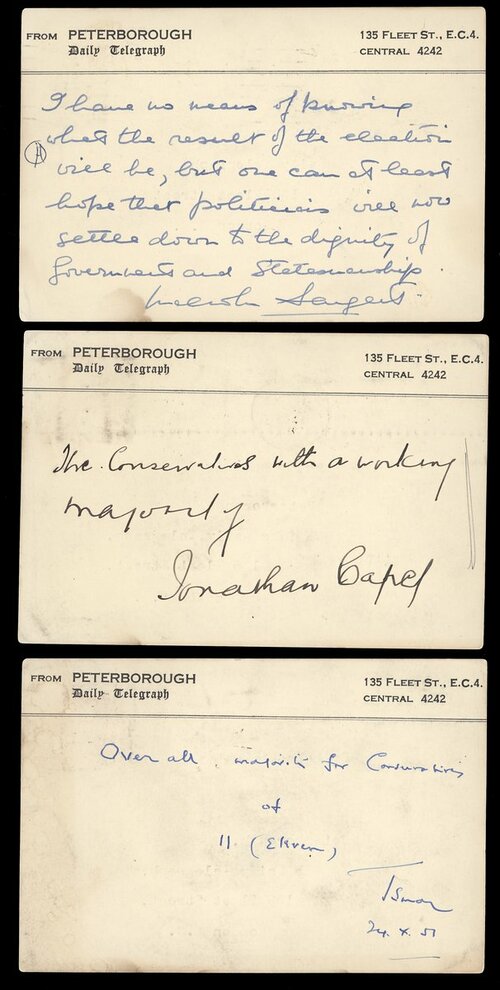 FROM PETERBOROUGH 135 FLEET ST., E.C.4.
Daily Telegraph CENTRAL 4242
I have no means of knowing
what the result of the election
A
will be, but one can at least
hope that politicians will now
settle down to the dignity of
Government and Statesmanship.
Malcolm Sargent.
FROM PETERBOROUGH 135 FLEET ST., E.C.4.
Daily Telegraph CENTRAL 4242
The Conservatives with a working
majority
Jonathan Cape
FROM PETERBOROUGH 135 FLEET ST., E.C.4.
Daily Telegraph CENTRAL 4242
Over all majority for Conservatives
of
11 (Eleven)
Ismay
24. X. 51